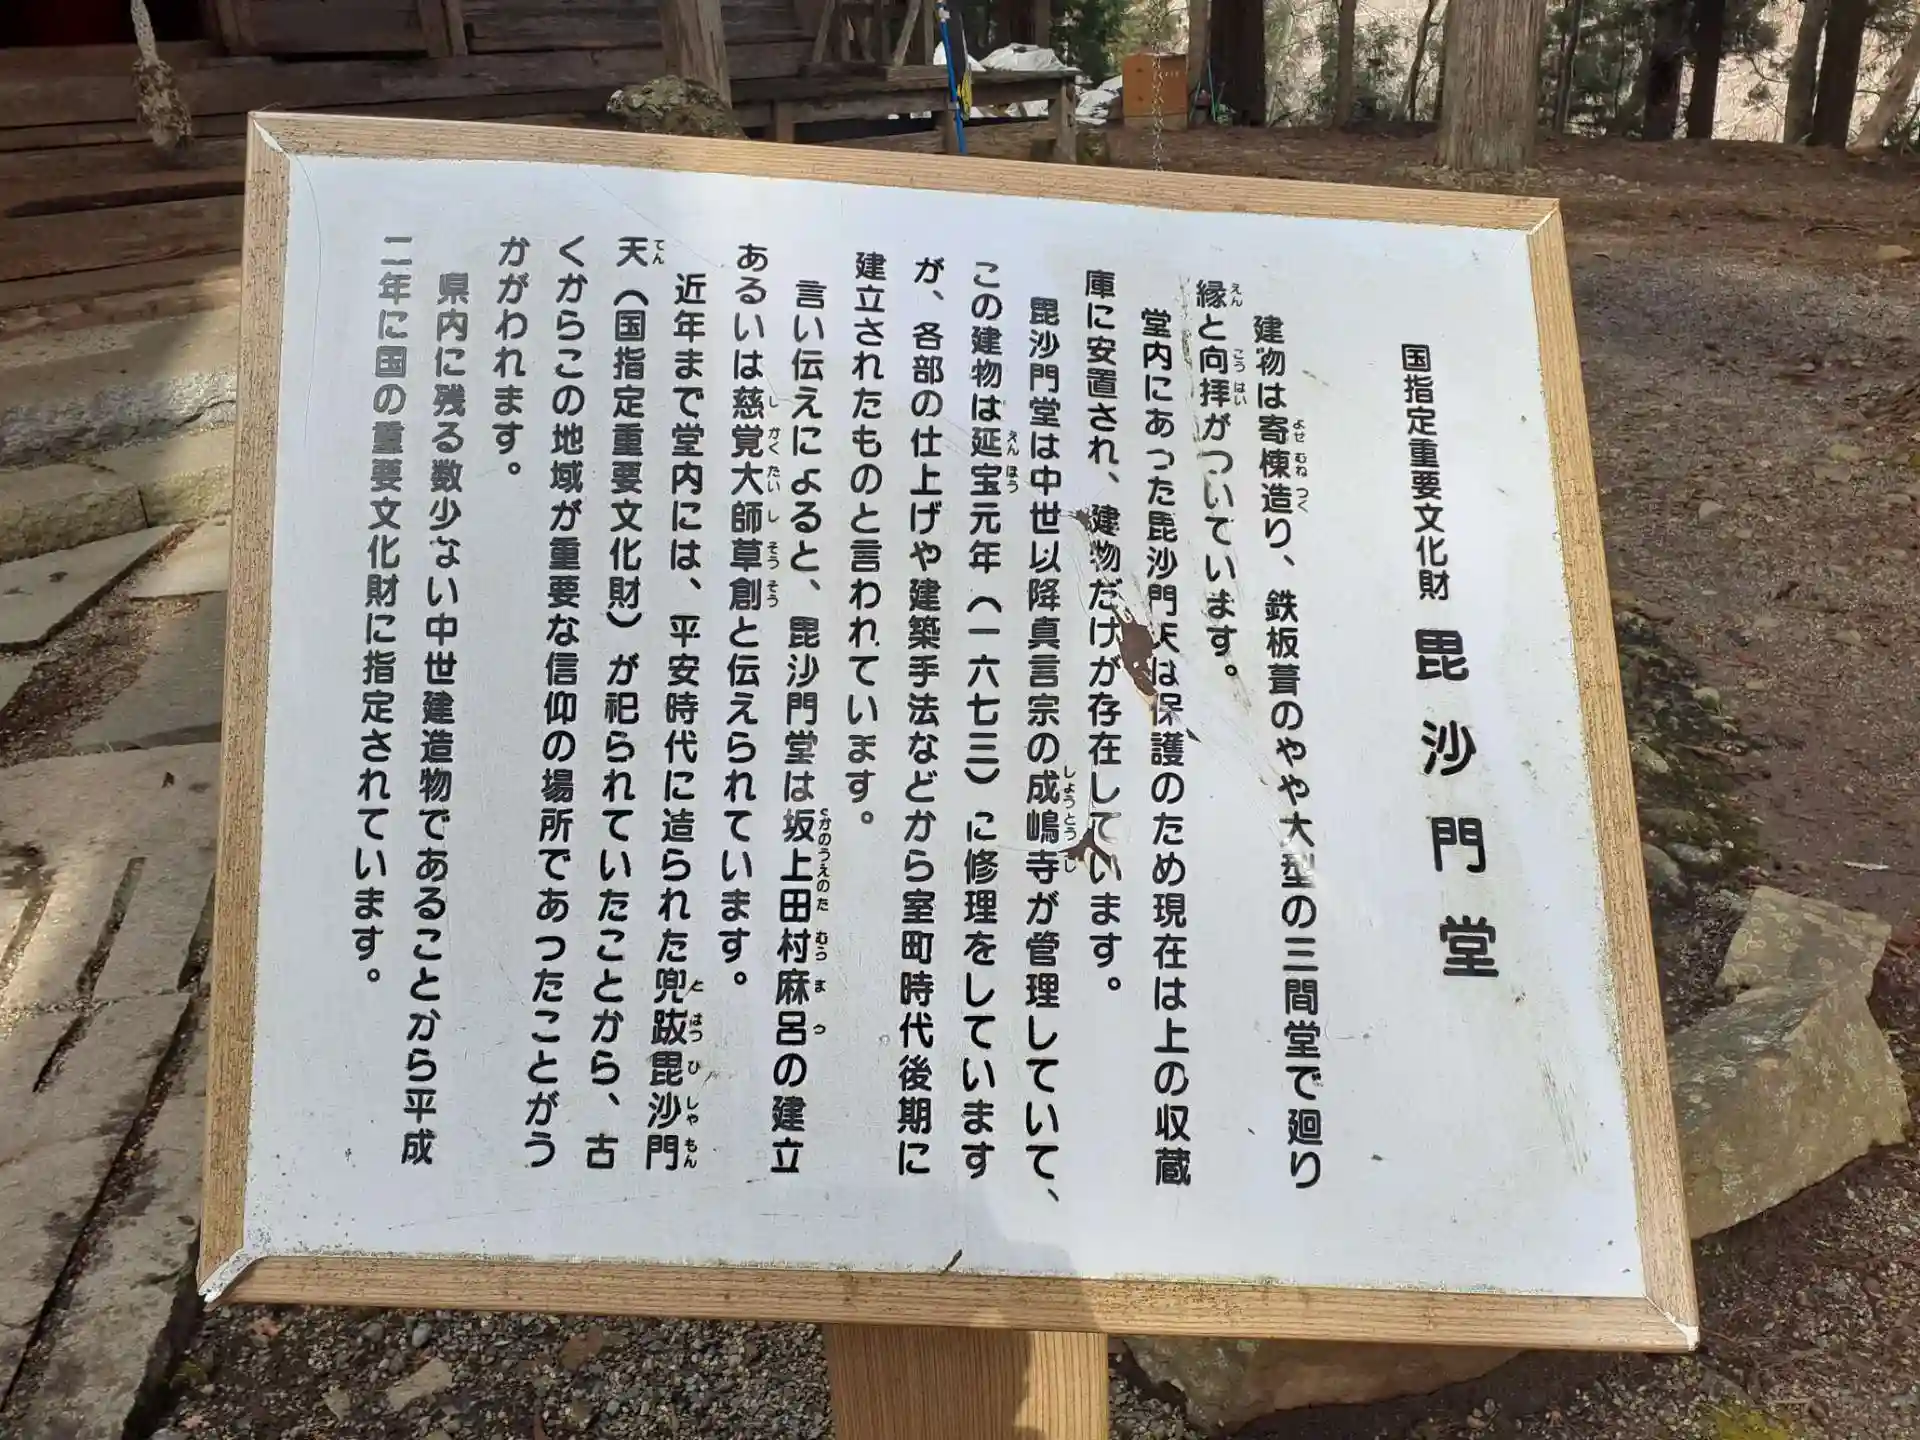 国指定重要文化財 毘沙門堂
建物は寄棟造り、鉄板葺のやや大型の三間堂で廻り
縁と向拝がついています。
堂内にあった毘沙門天は保護のため現在は上の収蔵
庫に安置され、建物だけが存在しています。
毘沙門堂は中世以降真言宗の成嶋寺が管理していて、
この建物は延宝元年（一六七三）に修理をしています
が、各部の仕上げや建築手法などから室町時代後期に
建立されたものと言われています。
言い伝えによると、毘沙門堂は坂上田村麻呂の建立
あるいは慈覚大師草創と伝えられています。
近年まで堂内には、平安時代に造られた兜跋毘沙門
天（国指定重要文化財）が祀られていたことから、古
くからこの地域が重要な信仰の場所であったことがう
かがわれます。
県内に残る数少ない中世建造物であることから平成
二年に国の重要文化財に指定されています。